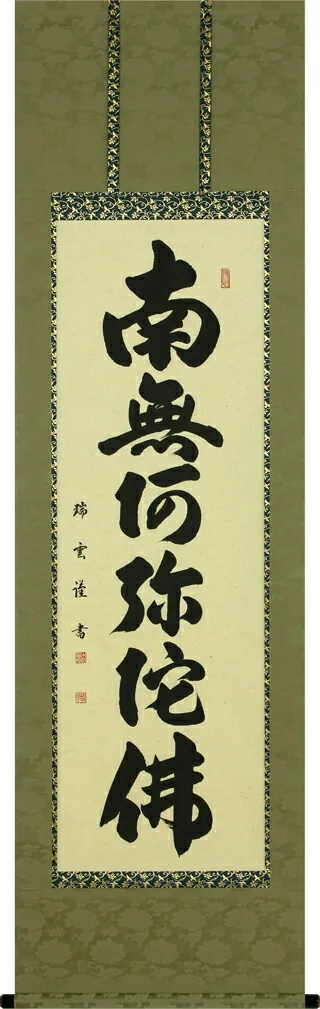 南無阿弥陀佛
瑞雲謹書